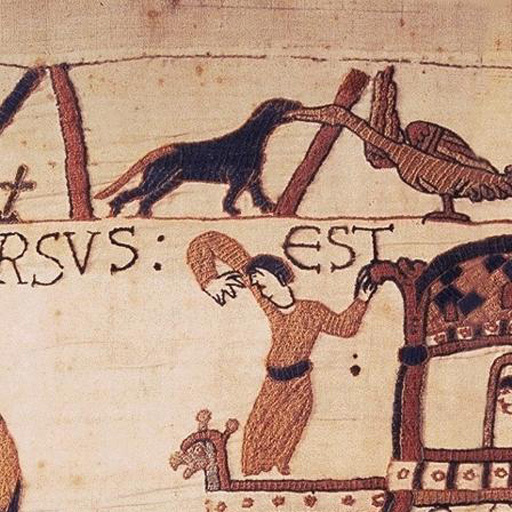 RSVS : EST :